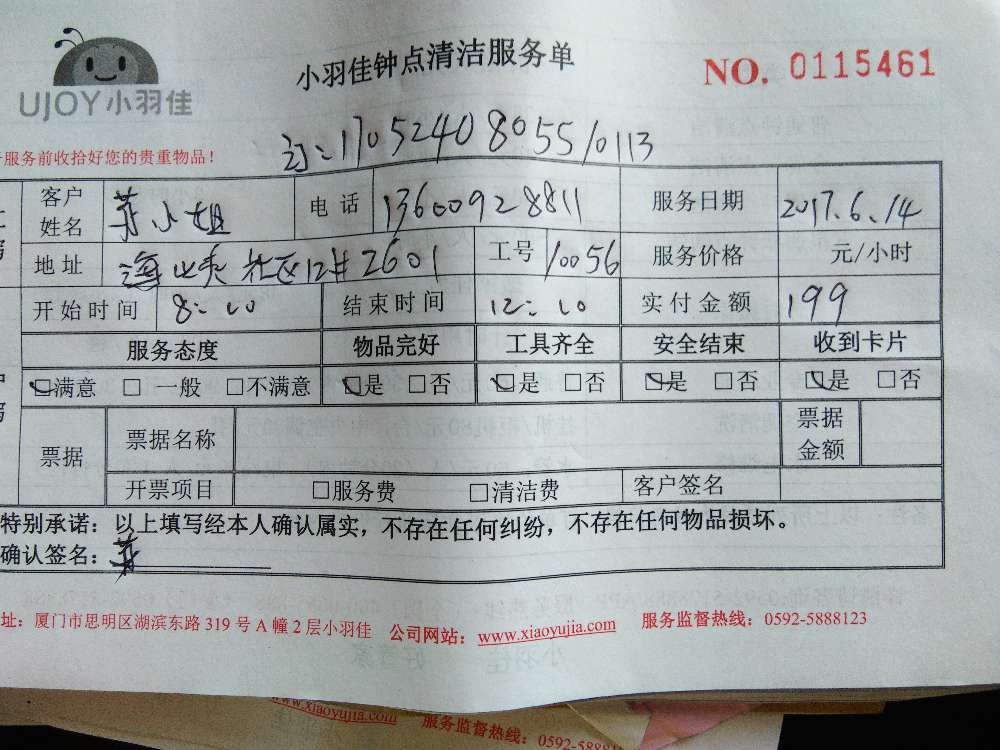 UJOY小羽佳
小羽佳钟点清洁服务单
NO. 0115461
订:170524080 55/0113
服务前收拾好您的贵重物品!
客户姓名 小姐 电话 13600928811 服务日期 2017.6.14
地址 海山美社区12#2601 工号 10056 服务价格 元/小时
开始时间 8:00 结束时间 12:00 实付金额 199
服务态度 物品完好 工具齐全 安全结束 收到卡片
☑满意 □ 一般 □不满意 ☑是 □否 ☑是 □否 ☑是 □否 ☑是 □否
票据 票据名称 票据金额
开票项目 □服务费 □清洁费 客户签名
特别承诺:以上填写经本人确认属实,不存在任何纠纷,不存在任何物品损坏。
确认签名:
址:厦门市思明区湖滨东路 319 号 A 幢 2 层小羽佳 公司网站:www.xiaoyujia.com 服务监督热线:0592-5888123
www.xiaoyujia.com 服务监督热线:0592-5888